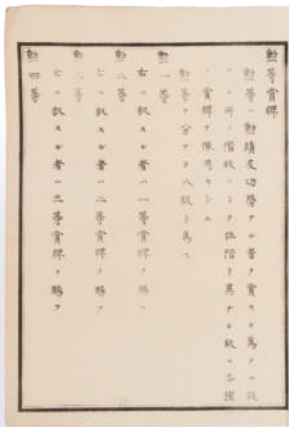 勲等賞牌
勲等ハ勲績及功勞アル者ヲ賞スル為メニ設
クル所ノ階級ニシテ位階ト異ナル故ニ各種
ノ賞牌ヲ佩用セシム
勲等ヲ分テ八級ト為ス
勲一等
右ニ叙スル者ニ一等賞牌ヲ賜フ
勲二等
右ニ叙スル者ニ二等賞牌ヲ賜フ
勲三等
右ニ叙スル者ニ三等賞牌ヲ賜フ
勲四等